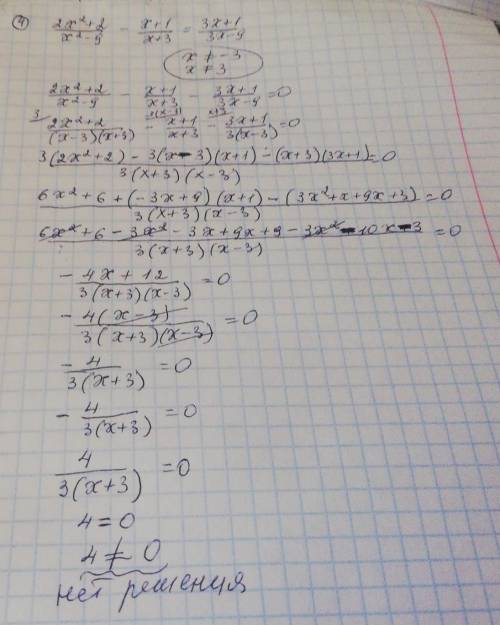 ④ (2x²+2)/(x²-9) - (x+1)/(x+3) = (3x+1)/(3x-9)
x ≠ -3
x ≠ 3
(2x²+2)/(x²-9) - (x+1)/(x+3) - (3x+1)/(3x-9) = 0
3 (2x²+2)/((x-3)(x+3)) - 3(x-3) (x+1)/(x+3) - x+3 (3x+1)/(3(x-3)) = 0
(3(2x²+2) - 3(x-3)(x+1) - (x+3)(3x+1))/(3(x+3)(x-3)) = 0
(6x²+6+(-3x+9)(x+1)-(3x²+x+9x+3))/(3(x+3)(x-3)) = 0
(6x²+6-3x²-3x+9x+9-3x²-10x-3)/(3(x+3)(x-3)) = 0
(-4x+12)/(3(x+3)(x-3)) = 0
-4(x-3)/(3(x+3)(x-3)) = 0
-4/(3(x+3)) = 0
-4/(3(x+3)) = 0
4/(3(x+3)) = 0
4 = 0
4 ≠ 0
нет решения